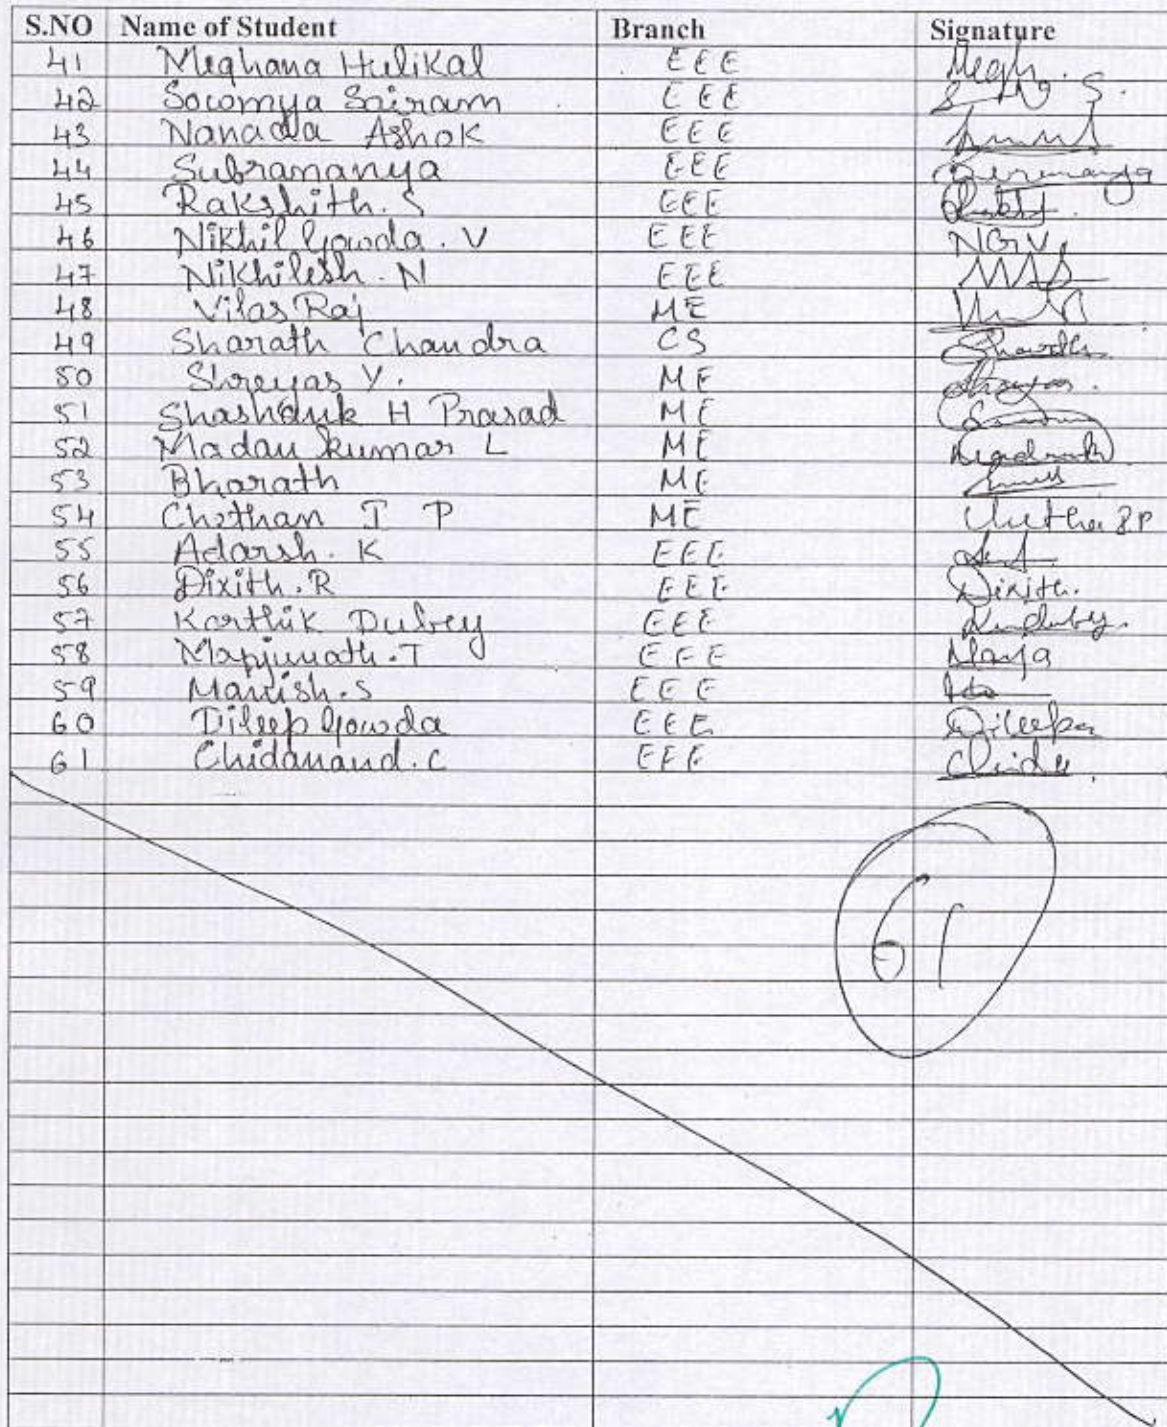 S.NO Name of Student Branch Signature
41 Meghana Hulikal EEE Megh.
42 Sowmya Sairam EEE
43 Nanada Ashok EEE
44 Subramanya EEE
45 Rakshith. S EEE
46 Nikhil Gowda. V EEE NGV
47 Nikhilesh. N EEE
48 Vilas Raj ME
49 Sharath Chandra CS Sharath
50 Shreyas Y. ME Shreyas.
51 Shashank H Prasad ME
52 Madan kumar L ME
53 Bharath ME
54 Chethan J P ME
55 Adarsh. K EEE
56 Dixith. R EEE Dixith.
57 Karthik Dubey EEE
58 Manjunath. T EEE Manja
59 Manish. S EEE
60 Dileep Gowda EEE
61 Chidanand. C EEE
61